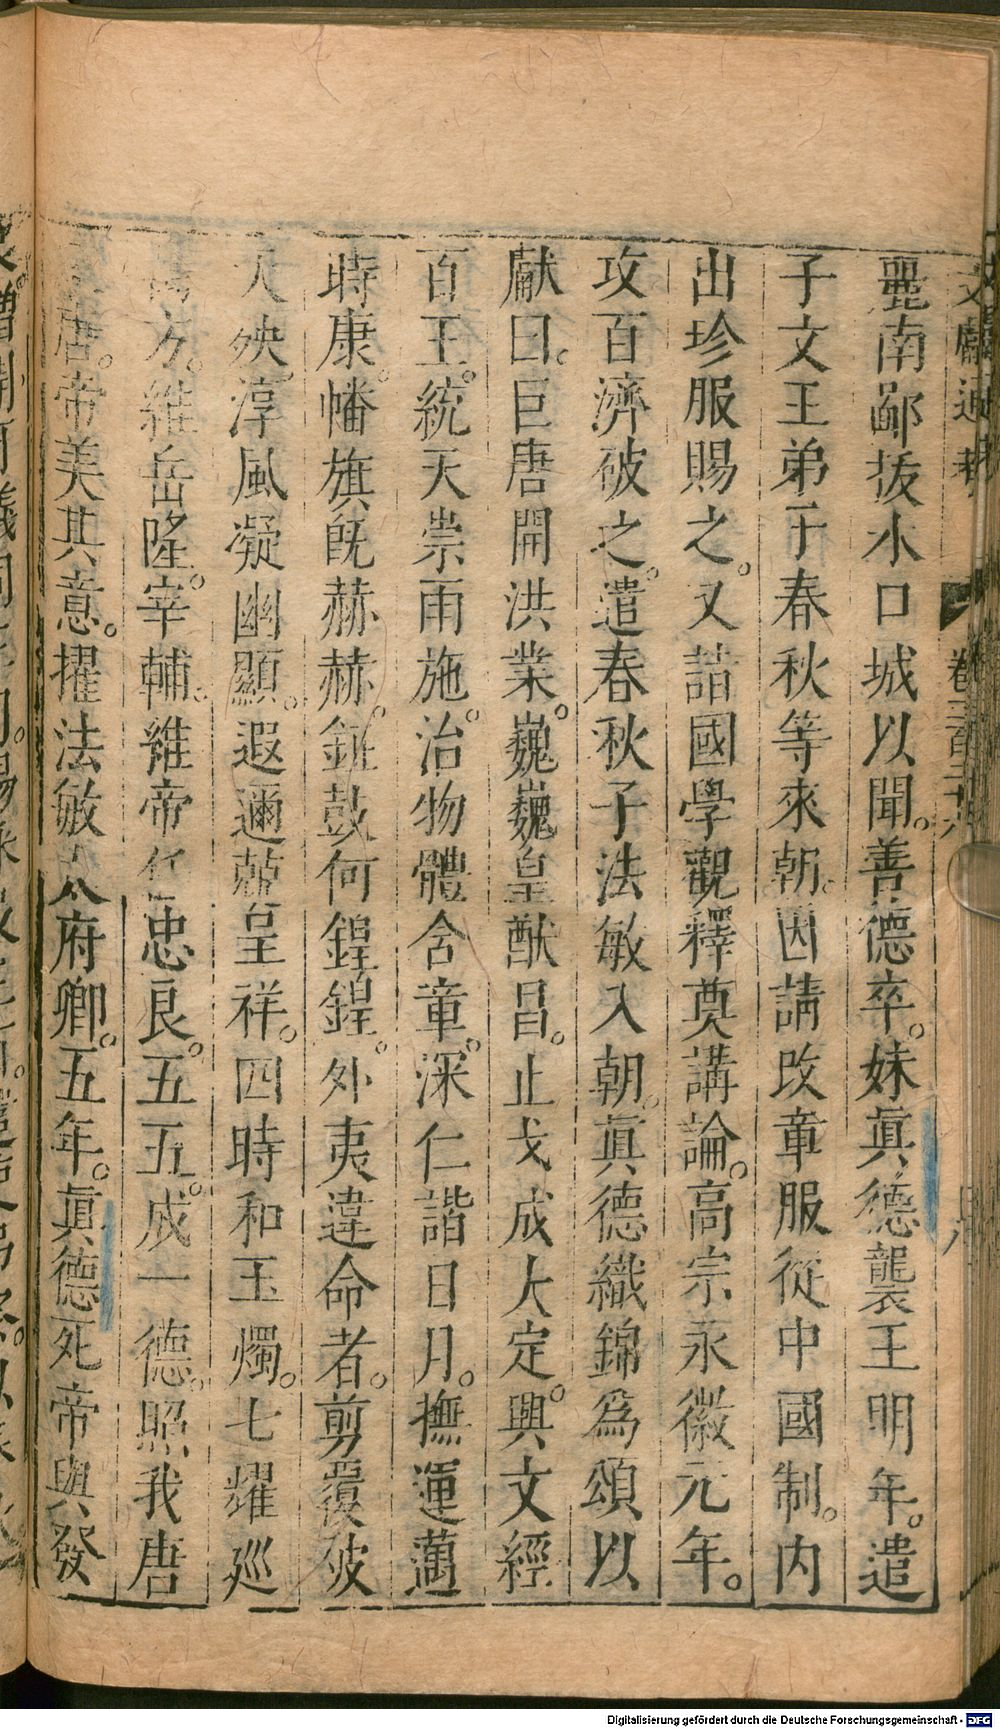 文獻通考 卷三百二十六
麗南鄙拔水口城以聞。善德卒。妹眞德襲王明年。遣
子文王弟子春秋等來朝。因請改章服從中國制。内
出珍服賜之。又詣國學觀釋奠講論。高宗永徽元年。
攻百濟破之。遣春秋子法敏入朝。眞德織錦爲頌以
獻曰。巨唐開洪業。巍巍皇猷昌。止戈成大定。興文經
百王。統天崇雨施。治物體含章。深仁諧日月。撫運邁
時康。幡旗旣赫赫。鉦鼓何鍠鍠。外夷違命者。剪覆彼
人殃。淳風凝幽顯。遐邇競呈祥。四時和玉燭。七耀巡
方。維岳隆宰輔。維帝任忠良。五五。成一德。照我唐
唐。帝美其意。擢法敏太府卿。五年。眞德死帝與發
Digitalisierung gefördert durch die Deutsche Forschungsgemeinschaft - DFG